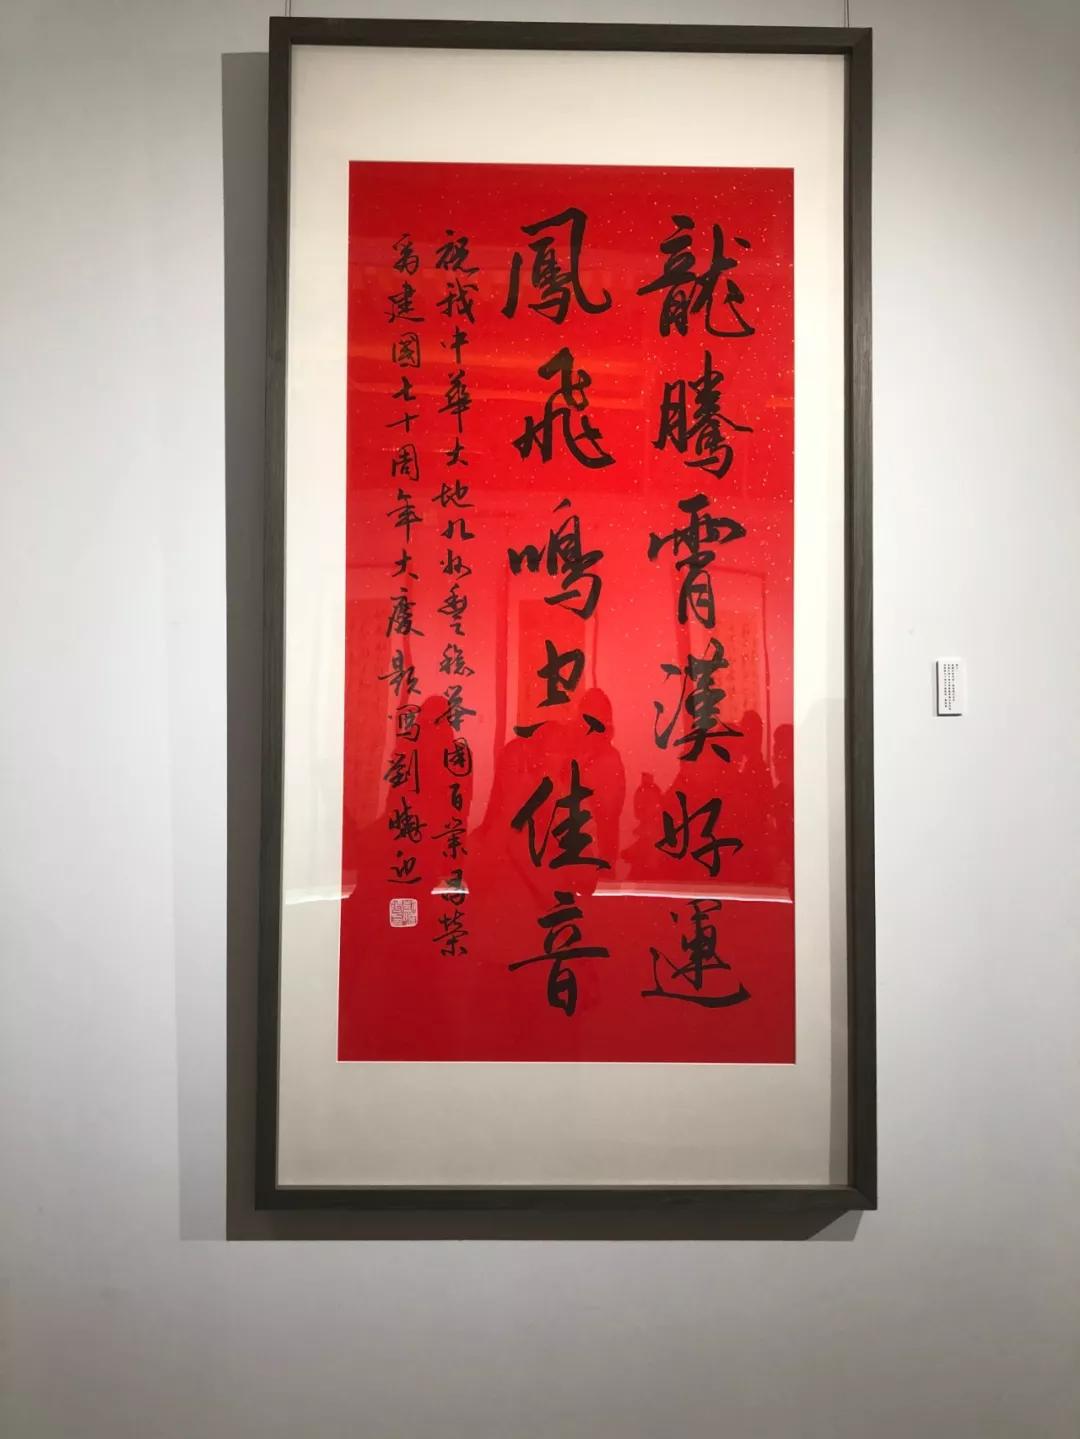 龍騰霄漢好運
鳳飛鳴空佳音
祝我中華大地九州豐稔舉國百業昌榮
為建國七十周年大慶題寫劉曉迎